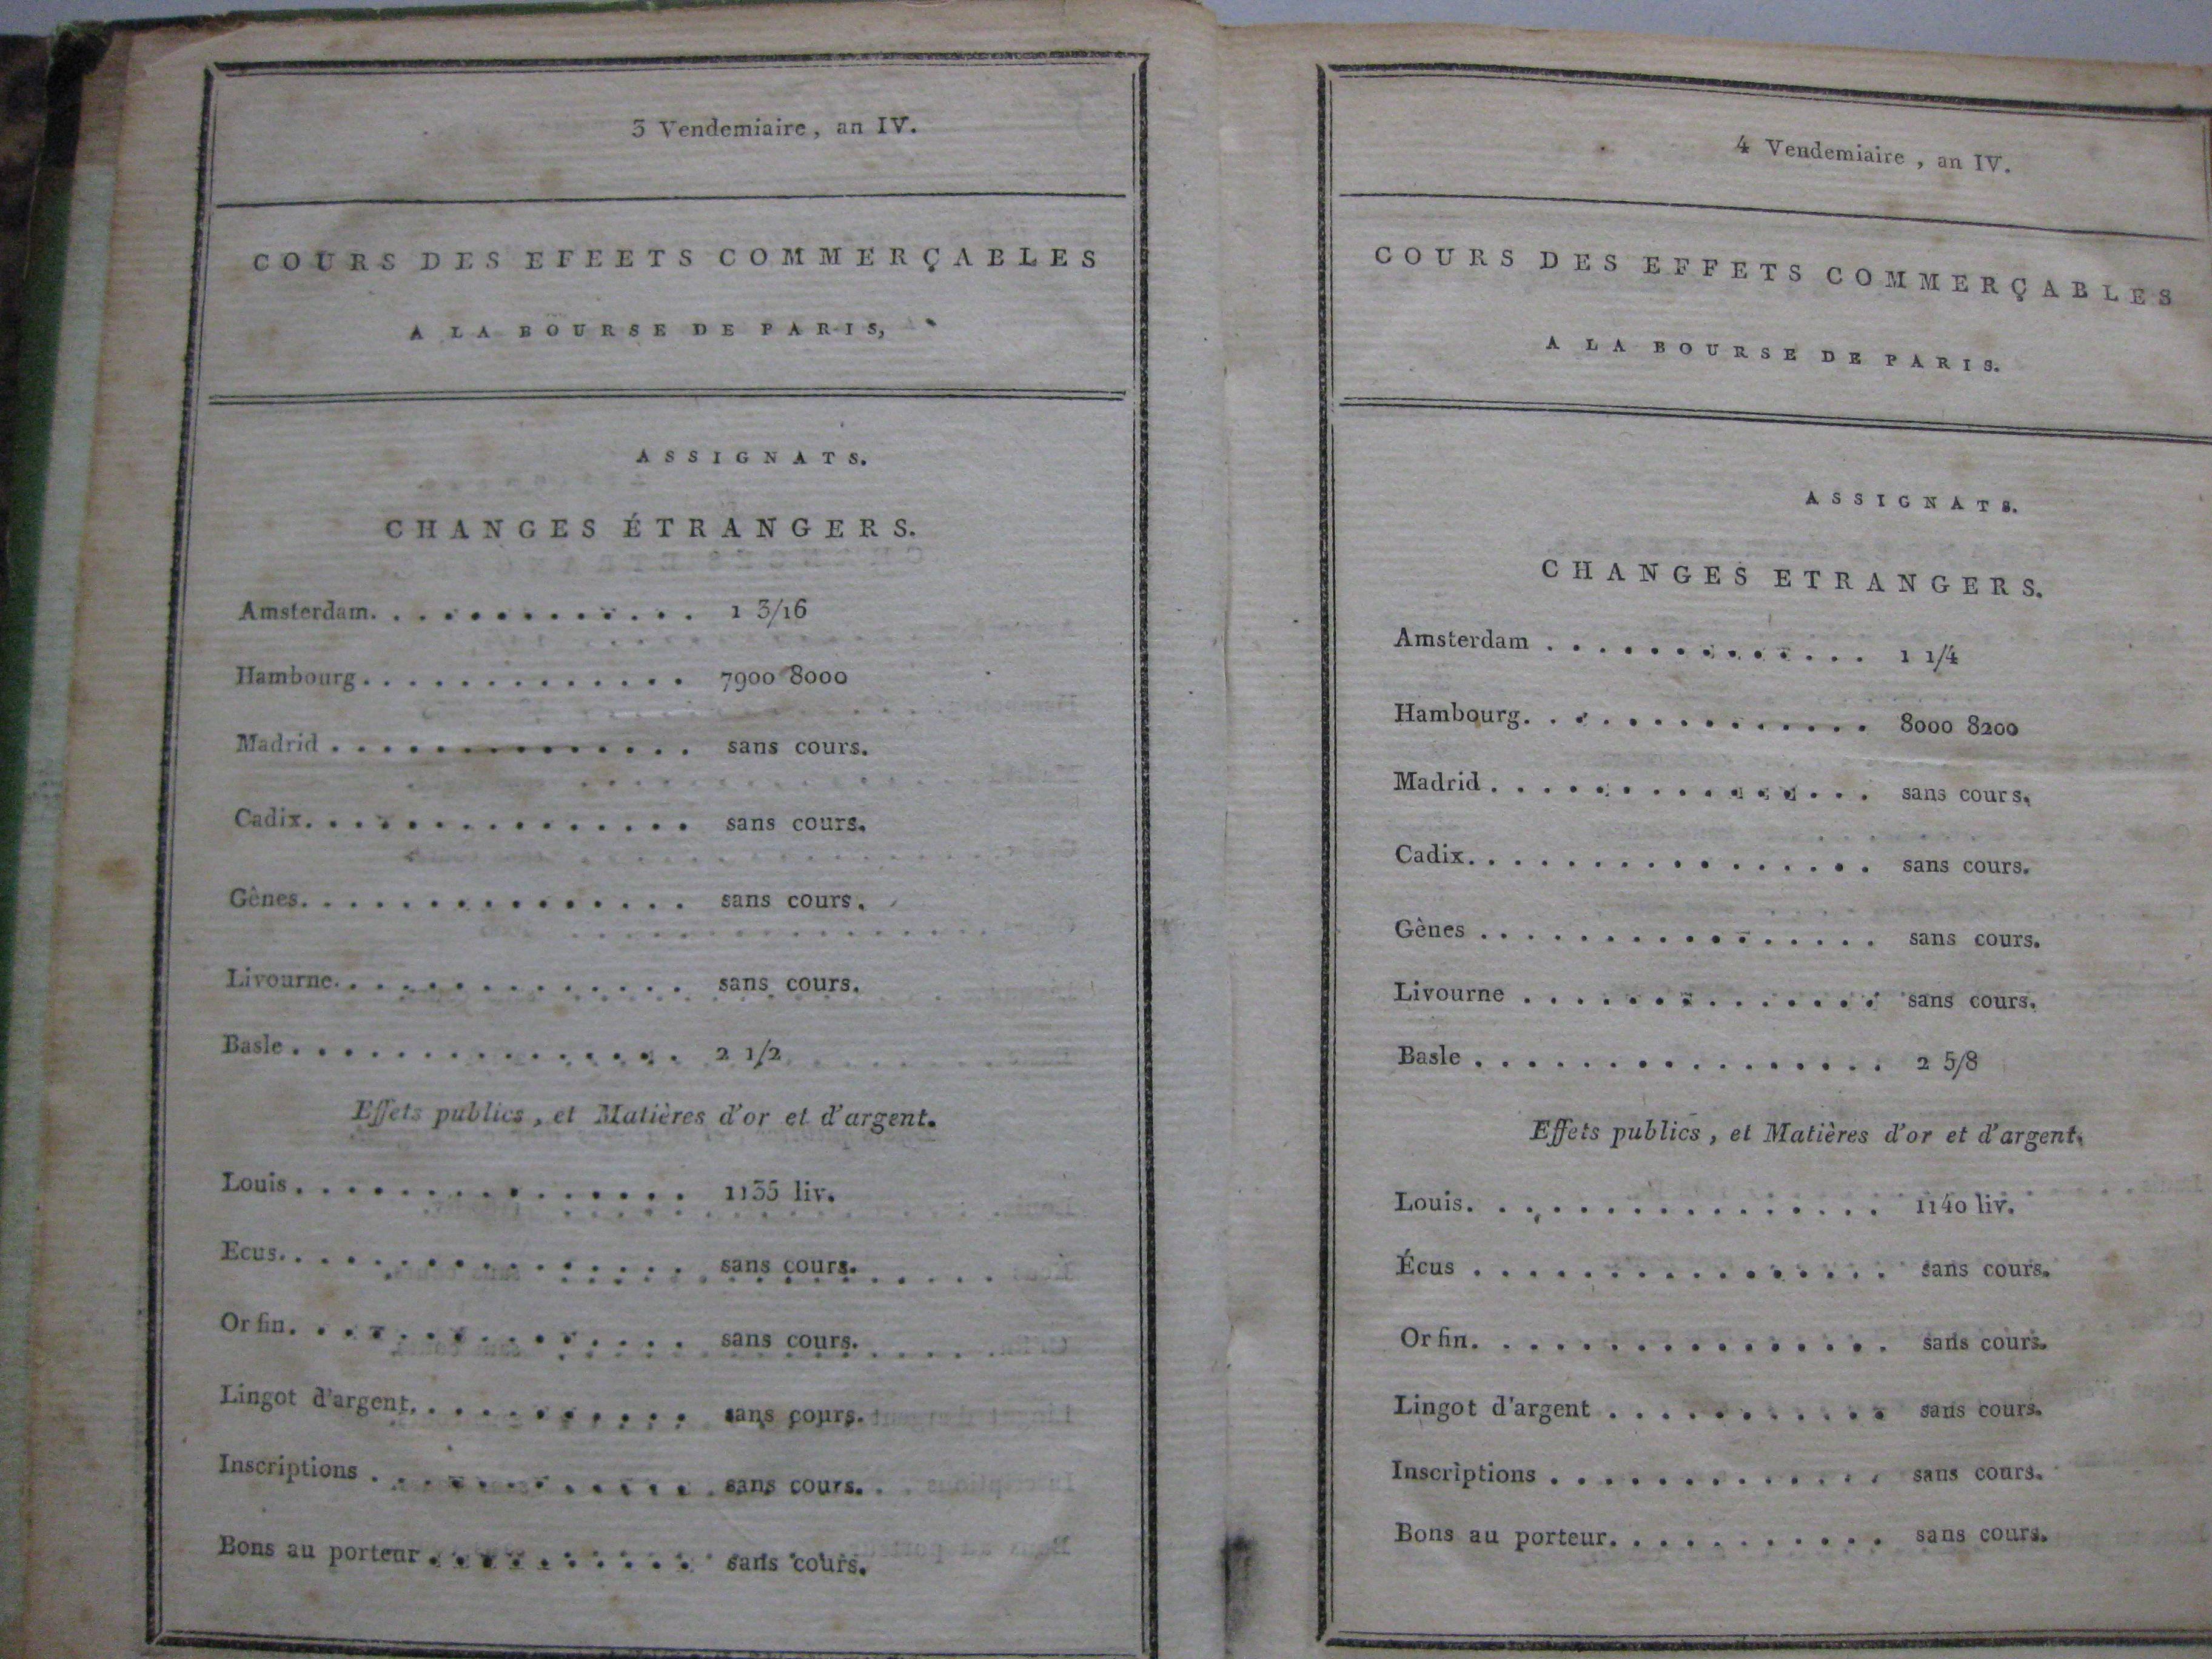 3 Vendemiaire, an IV.
COURS DES EFEETS COMMERÇABLES
A LA BOURSE DE PARIS,
ASSIGNATS.
CHANGES ÉTRANGERS.
Amsterdam. . . . . . . . . . . . . 1 3/16
Hambourg . . . . . . . . . . . . . 7900 8000
Madrid . . . . . . . . . . . . . . sans cours.
Cadix. . . . . . . . . . . . . . . sans cours.
Gênes. . . . . . . . . . . . . . . sans cours.
Livourne. . . . . . . . . . . . . . sans cours.
Basle . . . . . . . . . . . . . . . 2 1/2
Effets publics, et Matières d'or et d'argent.
Louis . . . . . . . . . . . . . . . 1135 liv.
Ecus. . . . . . . . . . . . . . . . sans cours.
Or fin. . . . . . . . . . . . . . . sans cours.
Lingot d'argent. . . . . . . . . . . sans cours.
Inscriptions . . . . . . . . . . . . sans cours.
Bons au porteur . . . . . . . . . . sans cours.
4 Vendemiaire, an IV.
COURS DES EFFETS COMMERÇABLES
A LA BOURSE DE PARIS.
ASSIGNATS.
CHANGES ETRANGERS.
Amsterdam . . . . . . . . . . . . . 1 1/4
Hambourg. . . . . . . . . . . . . . 8000 8200
Madrid . . . . . . . . . . . . . . . sans cours.
Cadix. . . . . . . . . . . . . . . . sans cours.
Gènes . . . . . . . . . . . . . . . . sans cours.
Livourne . . . . . . . . . . . . . . sans cours.
Basle . . . . . . . . . . . . . . . . 2 5/8
Effets publics, et Matières d'or et d'argent.
Louis. . . . . . . . . . . . . . . . 1140 liv.
Écus . . . . . . . . . . . . . . . . sans cours.
Or fin. . . . . . . . . . . . . . . . sans cours.
Lingot d'argent . . . . . . . . . . . sans cours.
Inscriptions . . . . . . . . . . . . . sans cours.
Bons au porteur. . . . . . . . . . . sans cours.